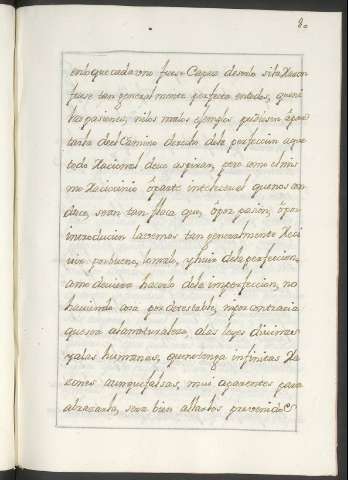 8.
enloquecadavno fuese Capaz desuio sila Razon
fuese tan generalmente perfecta entodos, que ni
las pasiones, nilos malos exemplos pudiesen apar
tarla deel Camino derecho dela perfeccion aque
todo Racional deue aspirar, pero como el mis
mo Raciocinio ó parte intelectual que nos con
duce, sean tan flaca que, ó por pasion, ó por
introducion lauemos tan generalmente Reci
uir por bueno, lo malo, y huir dela perfeccion,
como deuiera hacerlo dela imperfeccion, no
hauiendo cosa por detestable, nipor contraria
que sea ala naturaleza, alas leyes diuinas
yalas humanas, que no tenga infinitas Ra
zones aunque falsas, mui aparentes para
abrazarla, sera bien allarlos preuenidos